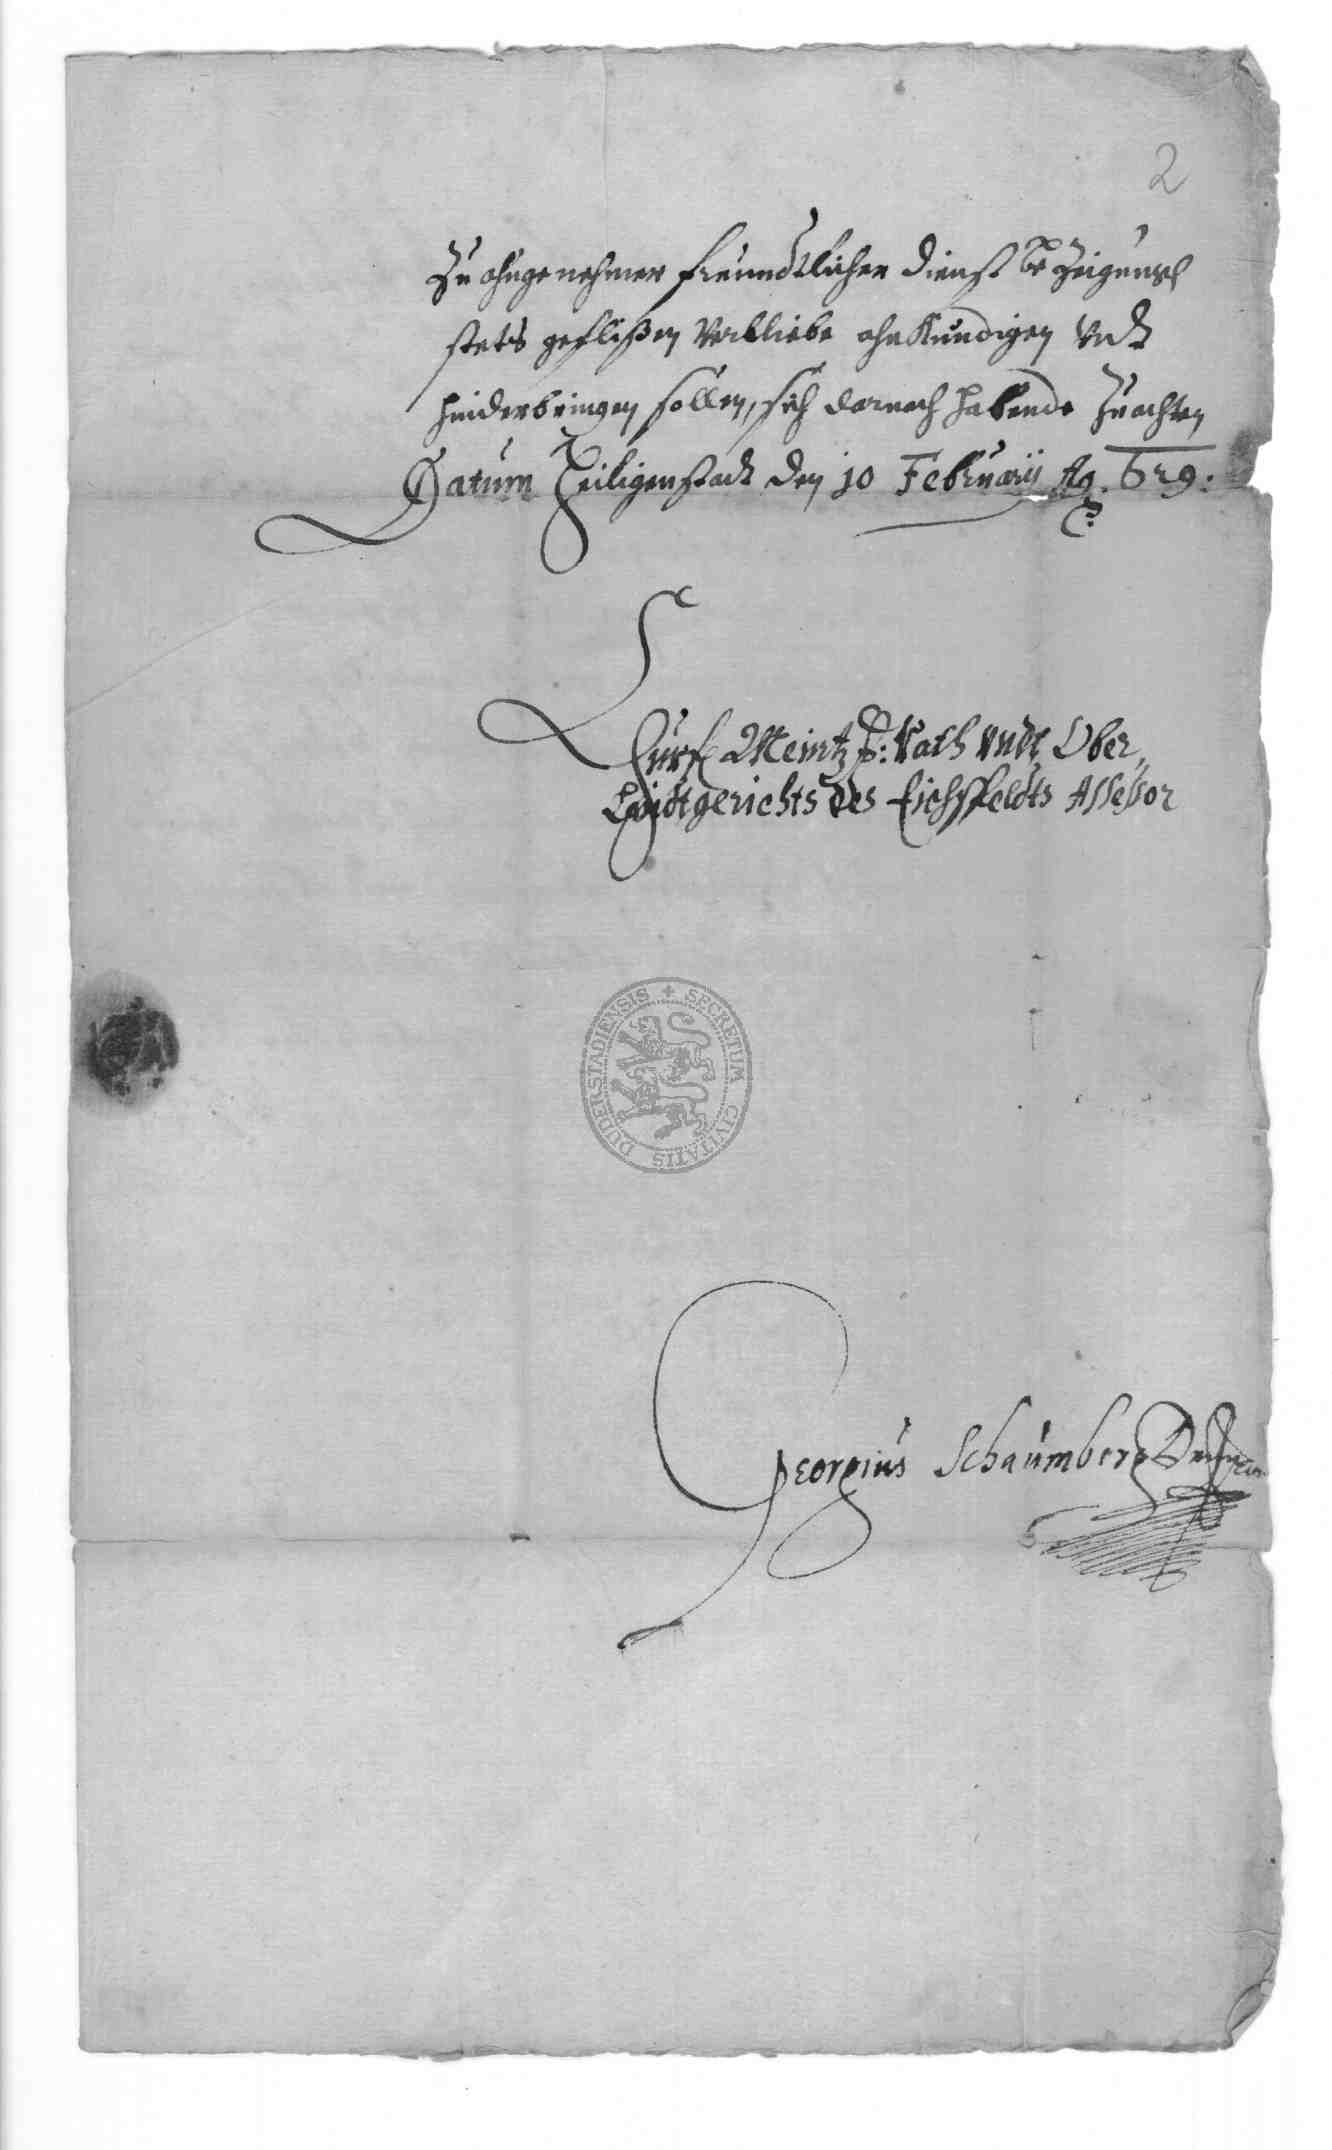 2
Zu ahngenehmer freundtlicher dienst bezeigung
stets geflißen verbliebe ahnkundigen vndt
hinderbringen sollen, sich darnach habende zuachten
Datum Heiligenstadt den 10 Februarij Ao. 629:
Churf Meintz: Rath vndt Ober
Landtgerichts des Eichßfeldts Assessor
SECRETUM CIVITATIS DUDERSTADIENSIS
Georgius Schaumberg